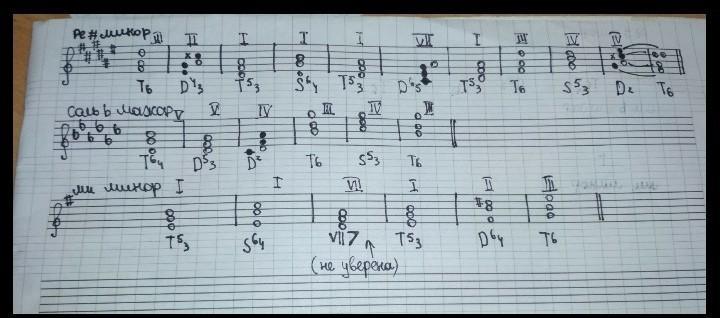 Ре# минор III II I I I VII I III IV IV
T6 D43 T53 S64 T53 D65 T53 T6 S53 D2 T6
Сольb мажор V V IV III IV III
T64 D53 D2 T6 S53 T6
ми минор I I VII I II III
T53 S64 VII7 T53 D64 T6
(не уверена)